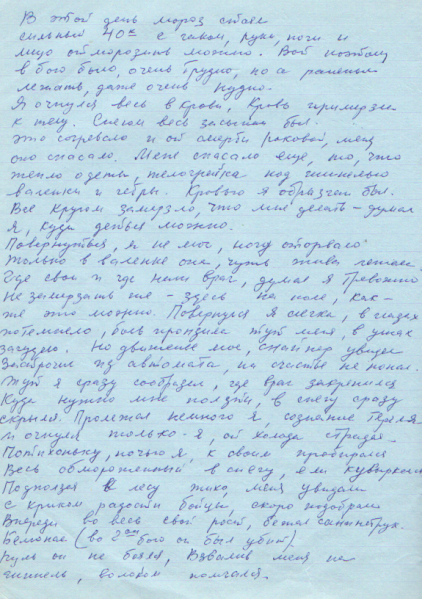 В этой день мороз стоял
сильный 40° с гаком, руки, ноги и
лицо отморозить можно. Вот поэтому
в бою было, очень трудно, но а раненым
лежать, даже очень нудно.
Я очнулся весь в крови, кровь примерзла
к телу. Снегом весь засыпан был.
это согревало и от смерти роковой, меня
оно спасало. Меня спасало ещё, то, что
тепло одеты, телогрейка под шинелью
валенки и гетры. Кровью я был.
Все кругом замерзло, что мне делать – думал
я, куда деться можно.
Повернуться, я не мог, ногу оторвало
только в валенке она, чуть жива
Где свои и где наши враг, думал я тревожно
Не замерзать же – здесь на поле, как –
же это можно. Повернулся я слегка, в глазах
потемнело, боль пронзила тут меня, в ушах
загудело. Но движение мое, снайпер увидел
Застрочил из автомата, на счастье не попал.
Тут я сразу сообразил, где враг закрепился
Куда нужно мне ползти, в снегу сразу
скрылся. Пролежал немного я, сознание терял
и очнулся только – я, от холода страдая
Потихоньку, ночью я, к своим пробирался
Весь обмороженный в снегу, кувыркался
Подполз я к лесу тихо, меня увидали
с криком радости бойцы, скоро подобрали
Впереди во весь свой рост, бежал санинструк.
(во 2ом бою он был убит)
Пуль он не боялся, Взвалив меня на
шинель, волоком помчался.